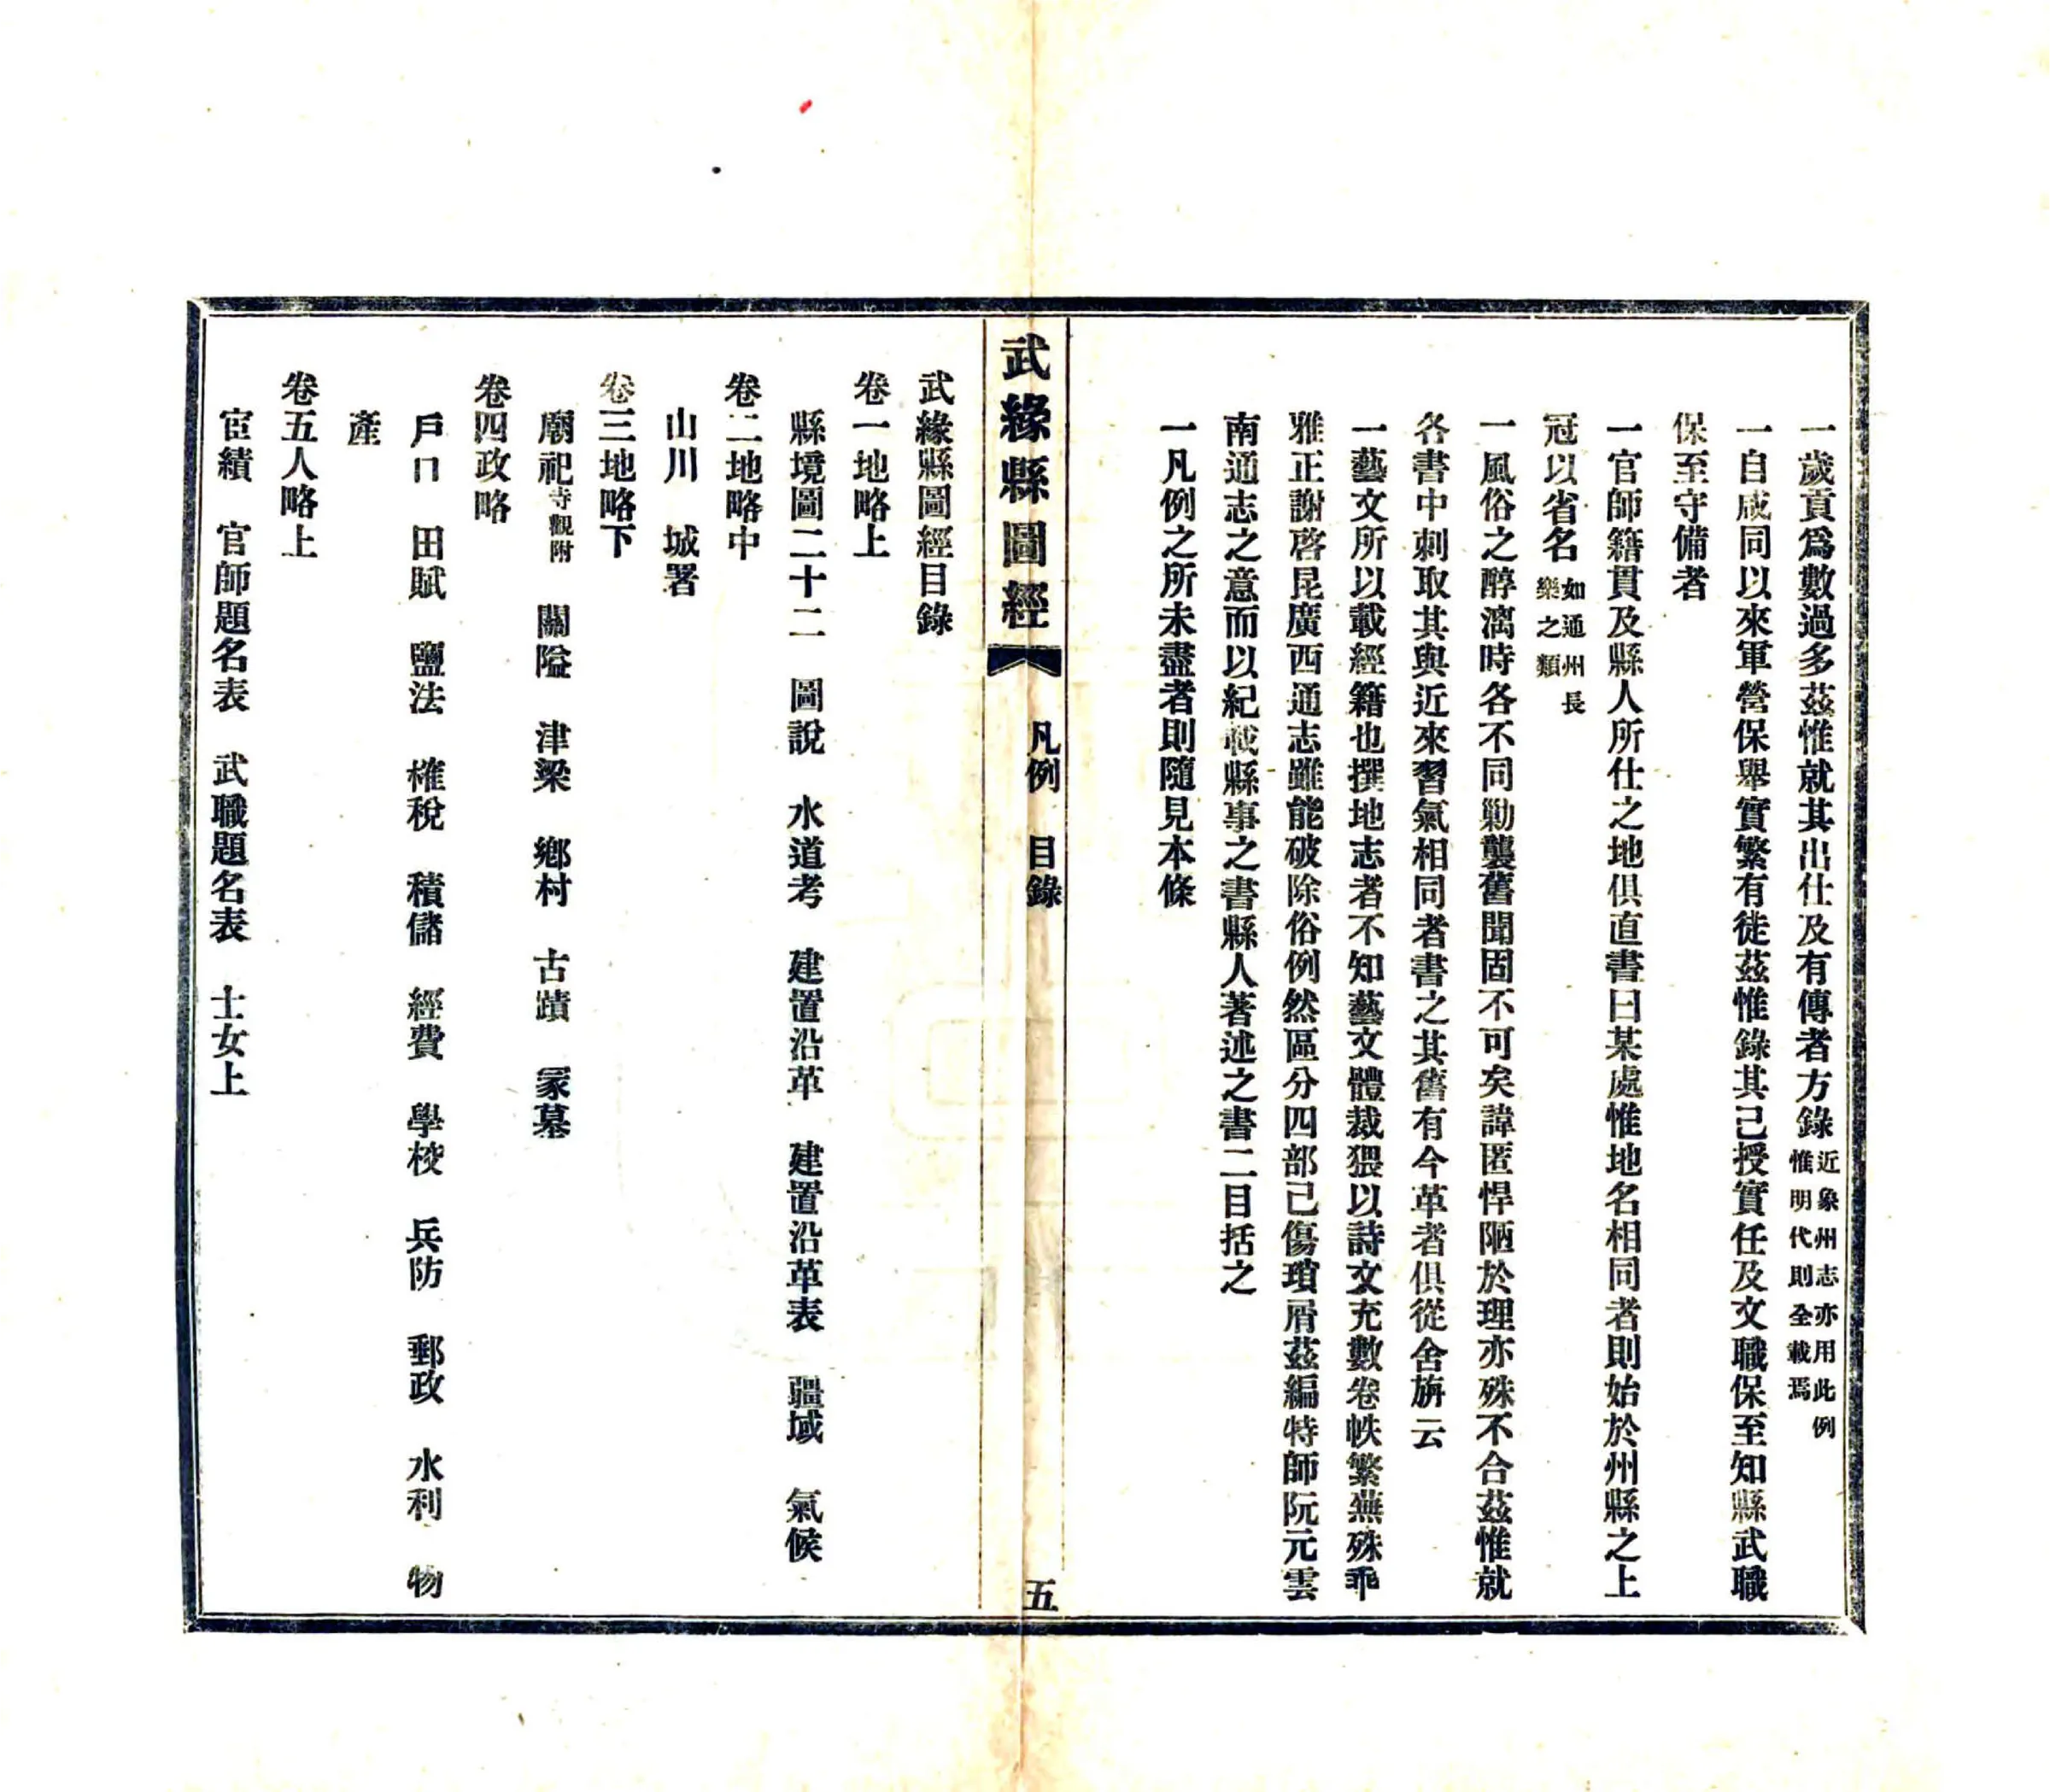 一歲貢爲數過多茲惟就其出仕及有傳者方錄近象州志亦用此例惟明代則全載焉
一自咸同以來軍營保舉實繁有徒茲惟錄其已授實任及文職保至知縣武職
保至守備者
一官師籍貫及縣人所仕之地俱直書曰某處惟地名相同者則始於州縣之上
冠以省名如通州長樂之類
一風俗之醇漓時各不同勦襲舊聞固不可矣諱匿悍陋於理亦殊不合茲惟就
各書中刺取其與近來習氣相同者書之其舊有今革者俱從舍旃云
一藝文所以載經籍也撰地志者不知藝文體裁猥以詩文充數卷帙繁蕪殊乖
雅正謝啓昆廣西通志雖能破除俗例然區分四部已傷瑣屑茲編特師阮元雲
南通志之意而以紀載縣事之書縣人著述之書二目括之
一凡例之所未盡者則隨見本條
武緣縣圖經 凡例 目錄 五
武緣縣圖經目錄
卷一地略上
縣境圖二十二 圖說 水道考 建置沿革 建置沿革表 疆域 氣候
卷二地略中
山川 城署
卷三地略下
廟祀寺觀附 關隘 津梁 鄉村 古蹟 冢墓
卷四政略
戶口 田賦 鹽法 榷稅 積儲 經費 學校 兵防 郵政 水利 物
產
卷五人略上
宦績 官師題名表 武職題名表 士女上